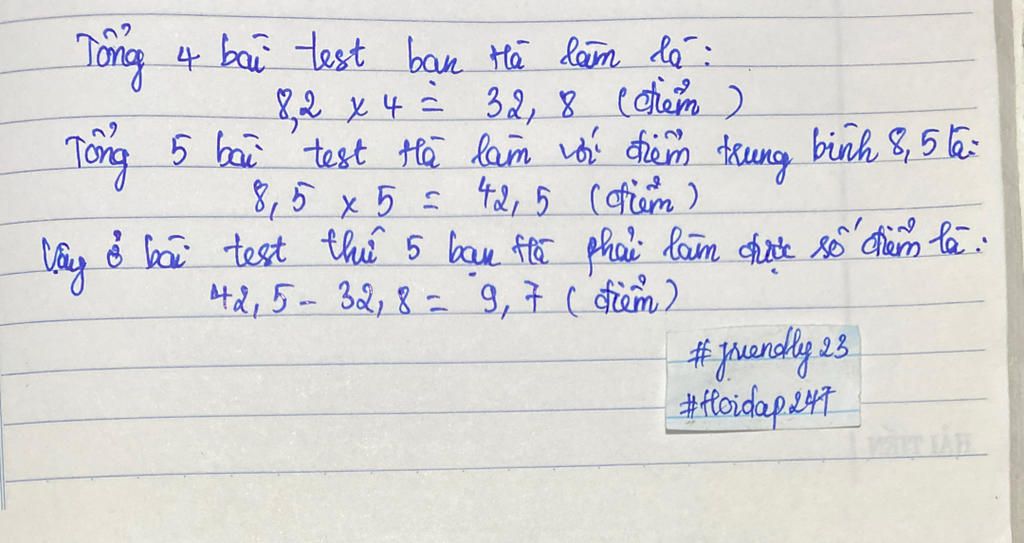 Tổng 4 bài test bạn Hà làm là:
8,2 x 4 = 32,8 (điểm)
Tổng 5 bài test Hà làm với điểm trung bình 8,5 là:
8,5 x 5 = 42,5 (điểm)
Vậy ở bài test thứ 5 bạn Hà phải làm được số điểm là:
42,5 - 32,8 = 9,7 (điểm)
#friendly23
#Hoidap247